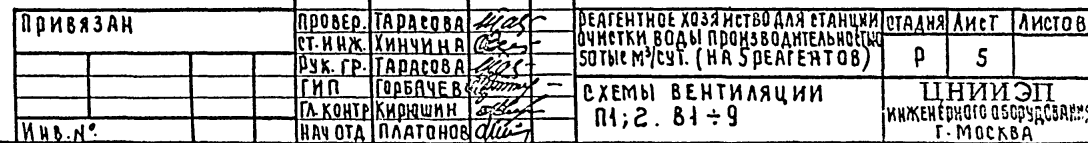 ПРИВЯЗАН
ИНВ.№
ПРОВЕР. ТАРАСОВА
СТ.ИНЖ. ХИНЧИНА
РУК. ГР. ТАРАСОВА
ГИП ГОРБАЧЕВ
ГЛ.КОНТР КИРЮШИН
НАЧ ОТД ПЛАТОНОВ
РЕАГЕНТНОЕ ХОЗЯЙСТВО ДЛЯ СТАНЦИИ
ОЧИСТКИ ВОДЫ ПРОИЗВОДИТЕЛЬНОСТЬЮ
50ТЫС М³/СУТ. (НА 5 РЕАГЕНТОВ)
СХЕМЫ ВЕНТИЛЯЦИИ
П1;2. В1÷9
СТАДИЯ ЛИСТ ЛИСТОВ
Р 5
ЦНИИЭП
ИНЖЕНЕРНОГО ОБОРУДОВАНИЯ
Г. МОСКВА